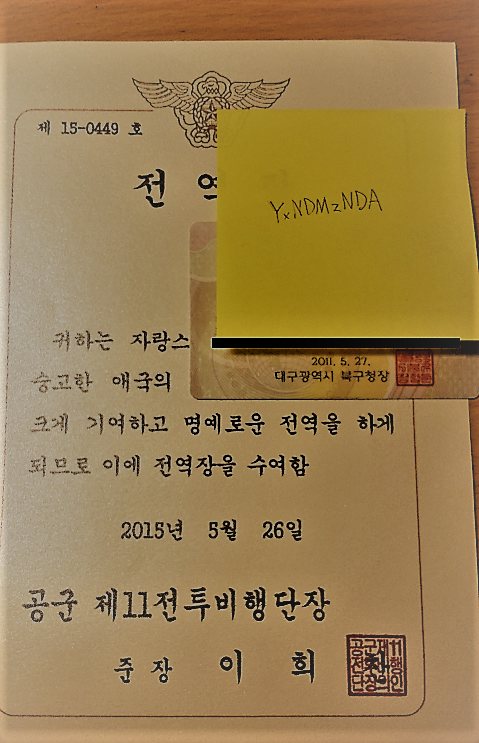 제 15-0449 호
전 역
YxNDMzNDA
귀하는 자랑스
2011. 5. 27.
대구광역시 북구청장
숭고한 애국의
크게 기여하고 명예로운 전역을 하게
되므로 이에 전역장을 수여함
2015년 5월 26일
공군 제11전투비행단장
준장 이 희